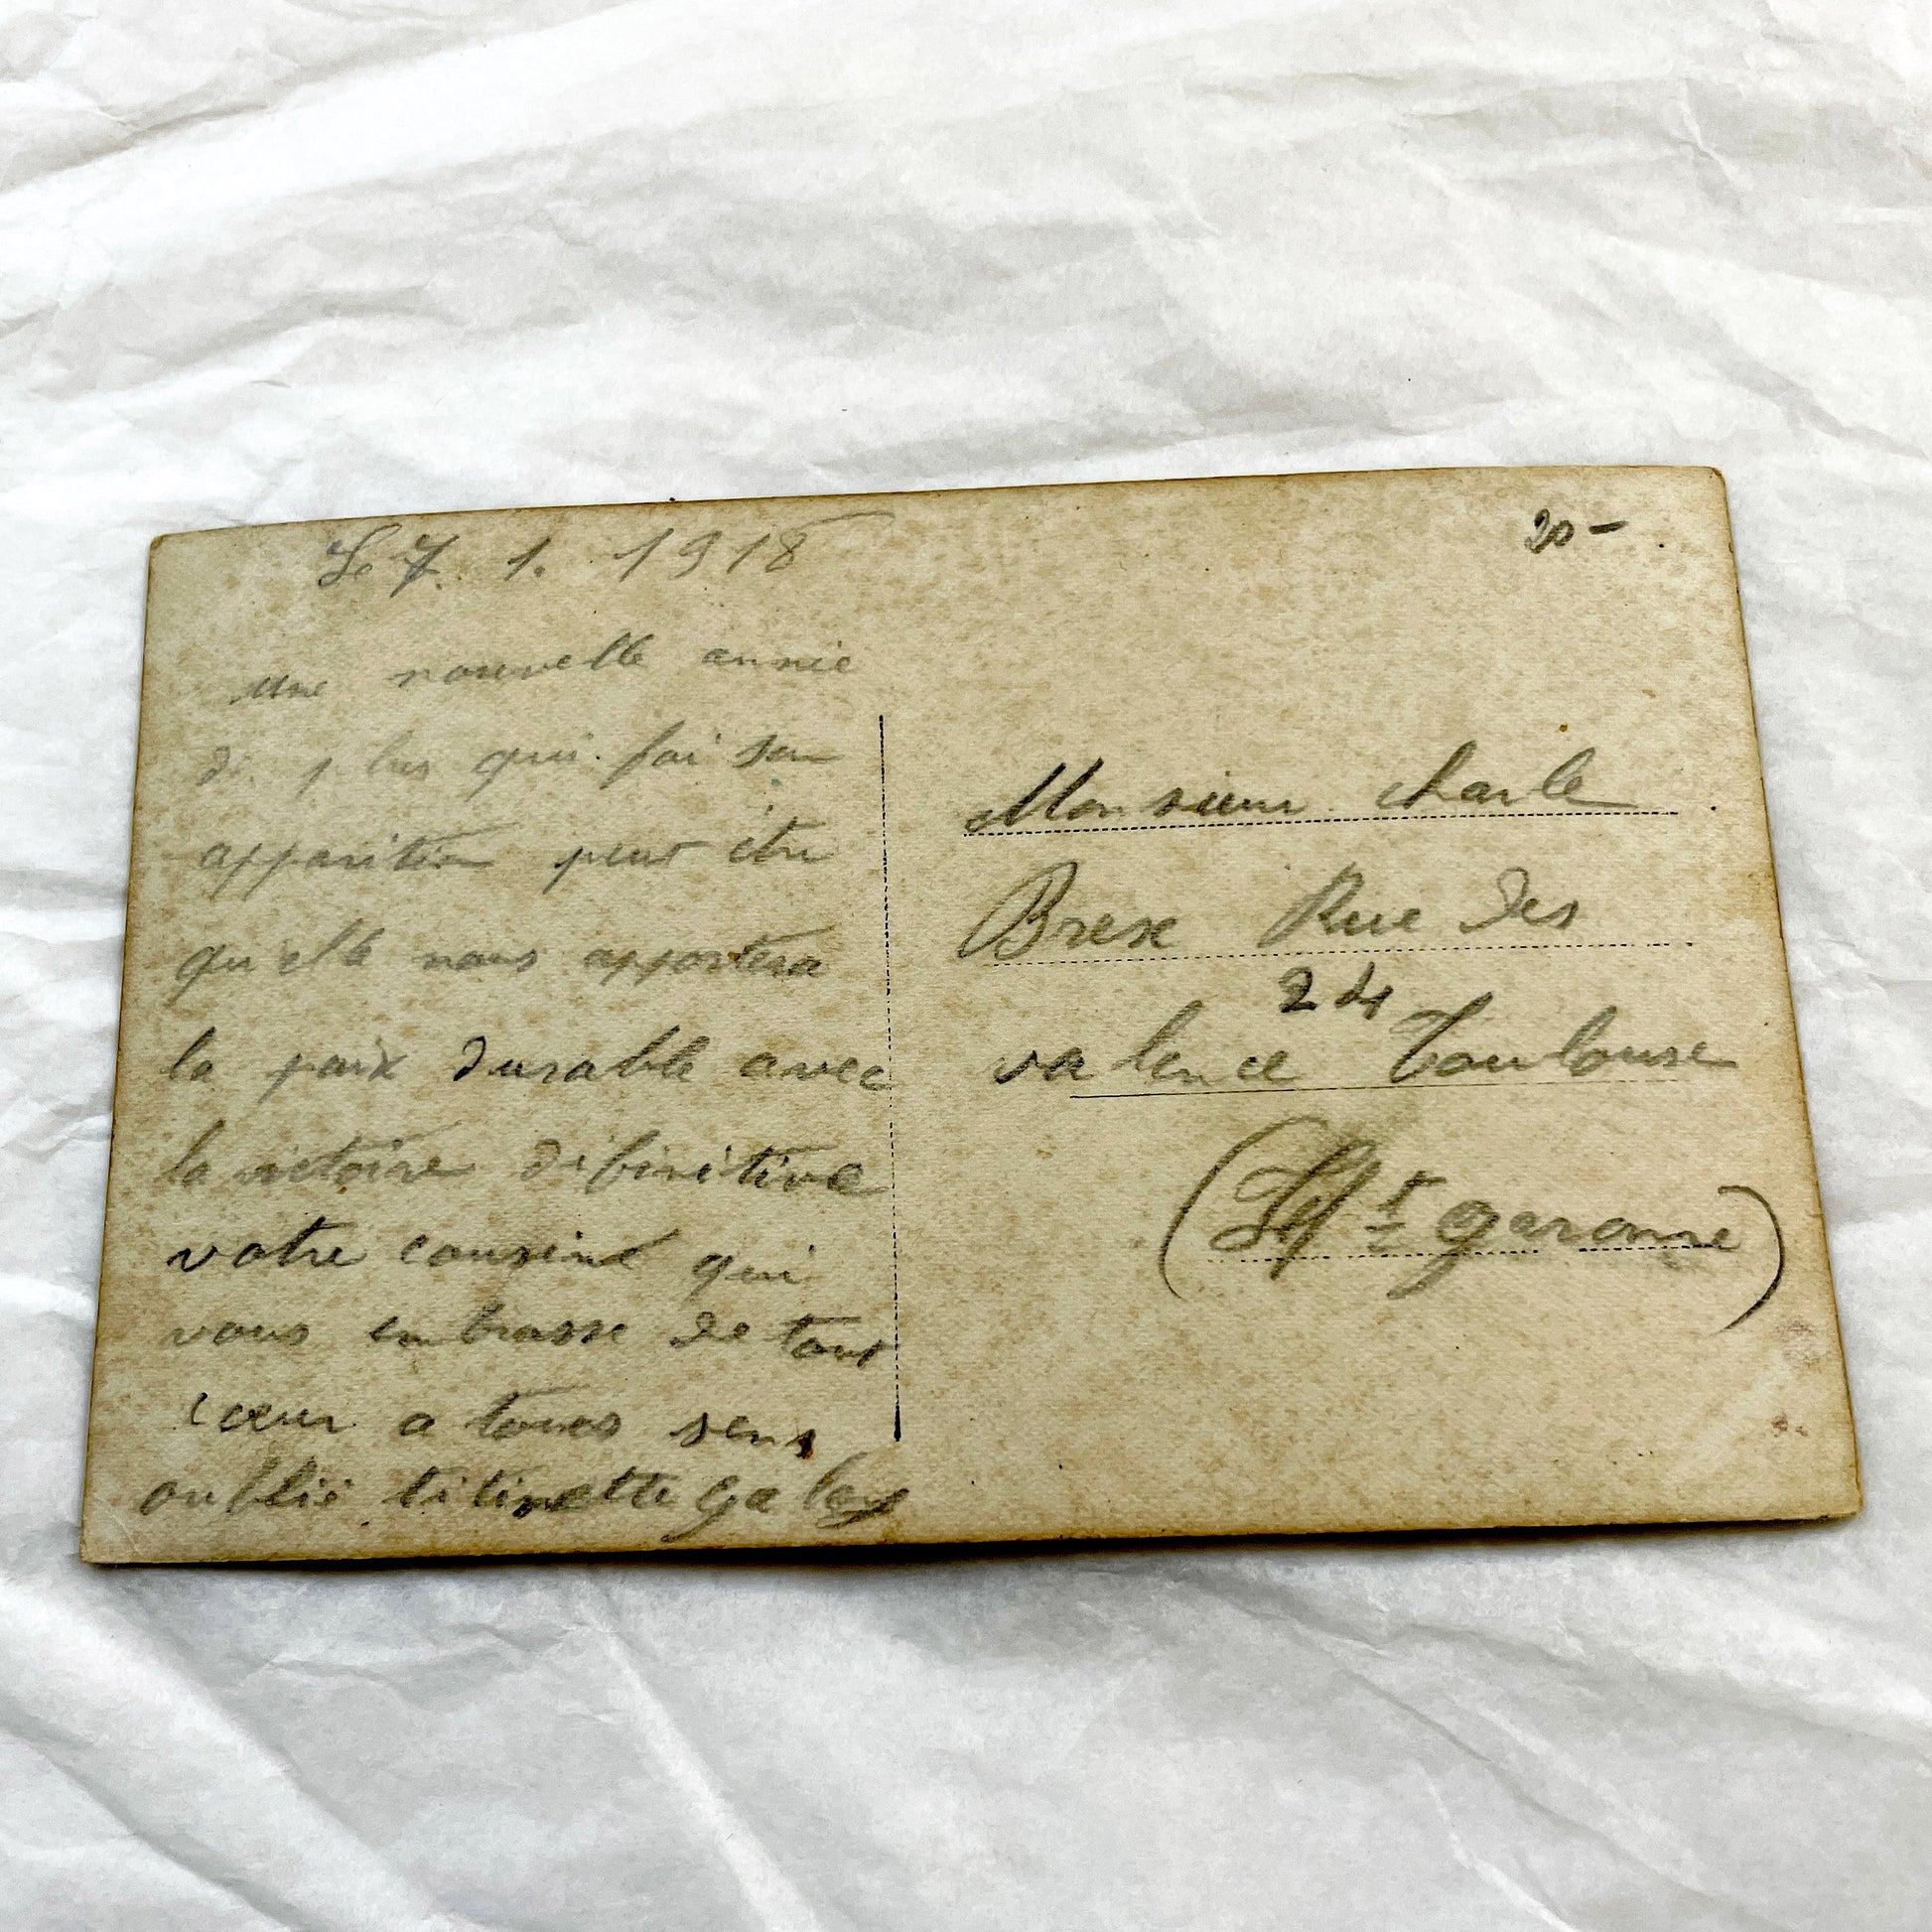 Le 7. 1. 1918
une nouvelle année
de plus qui fai son
apparition peut être
qu elle nous apportera
la paix durable avec
la victoire définitive
votre cousine qui
vous embrasse de tout
cœur a tous sens
oublié titinette Gaby
20-
Monsieur charle
Brexe Rue des
24
valence Toulouse
(Hte garonne)